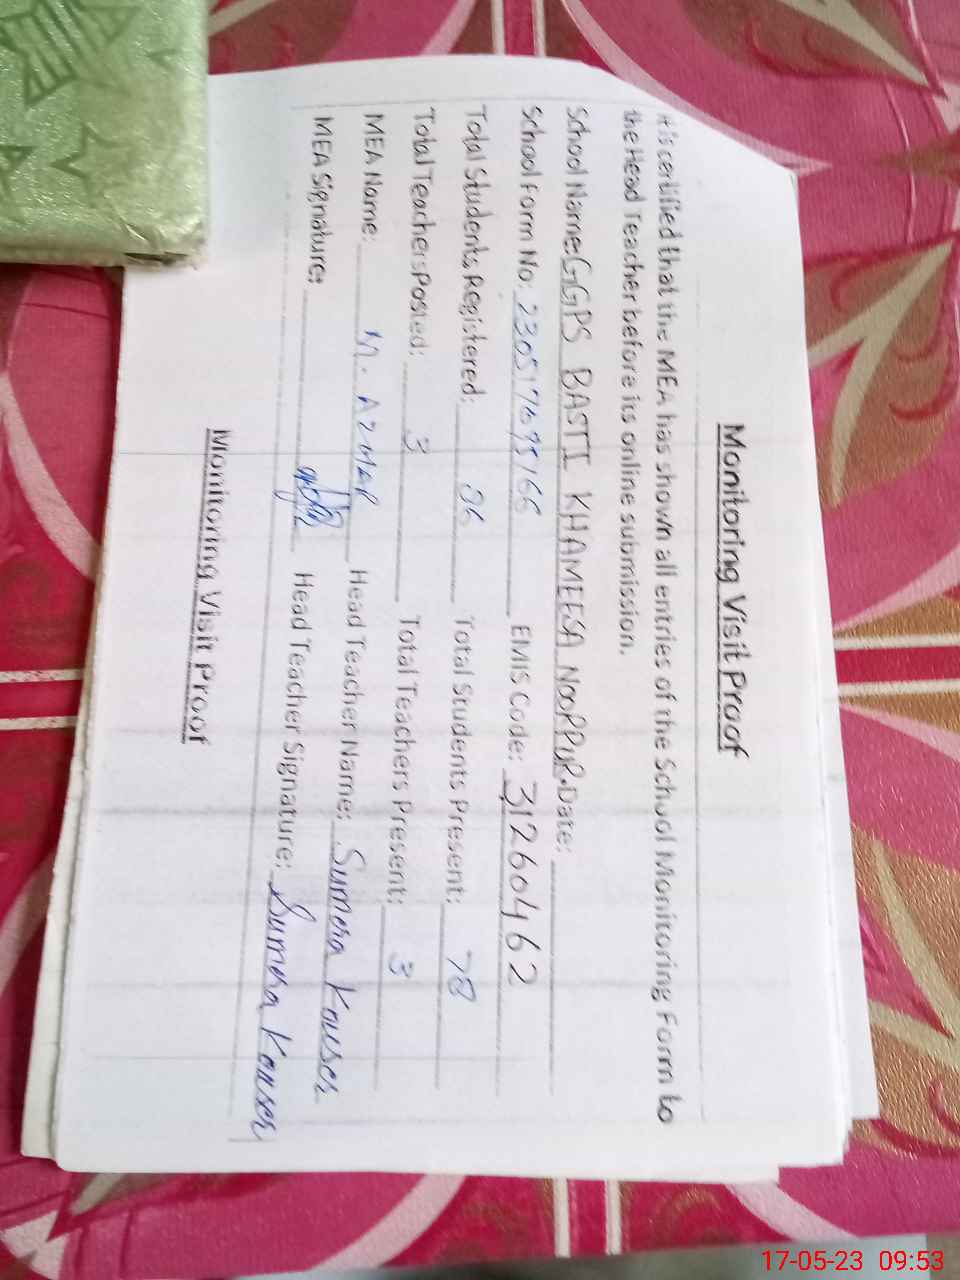 Monitoring Visit Proof
it is certified that the MEA has shown all entries of the School Monitoring Form to
the Head Teacher before its online submission.
School Name: GGPS BASTI KHAMEESA NOORPUR. Date:
School Form No: EMIS Code: 31260462
Total Students Registered: 86 Total Students Present: 78
Total Teachers Posted: 3 Total Teachers Present: 3
MEA Name: M. AZHAR Head Teacher Name: Sumera Kouser
MEA Signature: Head Teacher Signature: Sumera Kouser
Monitoring Visit Proof
17-05-23 09:53